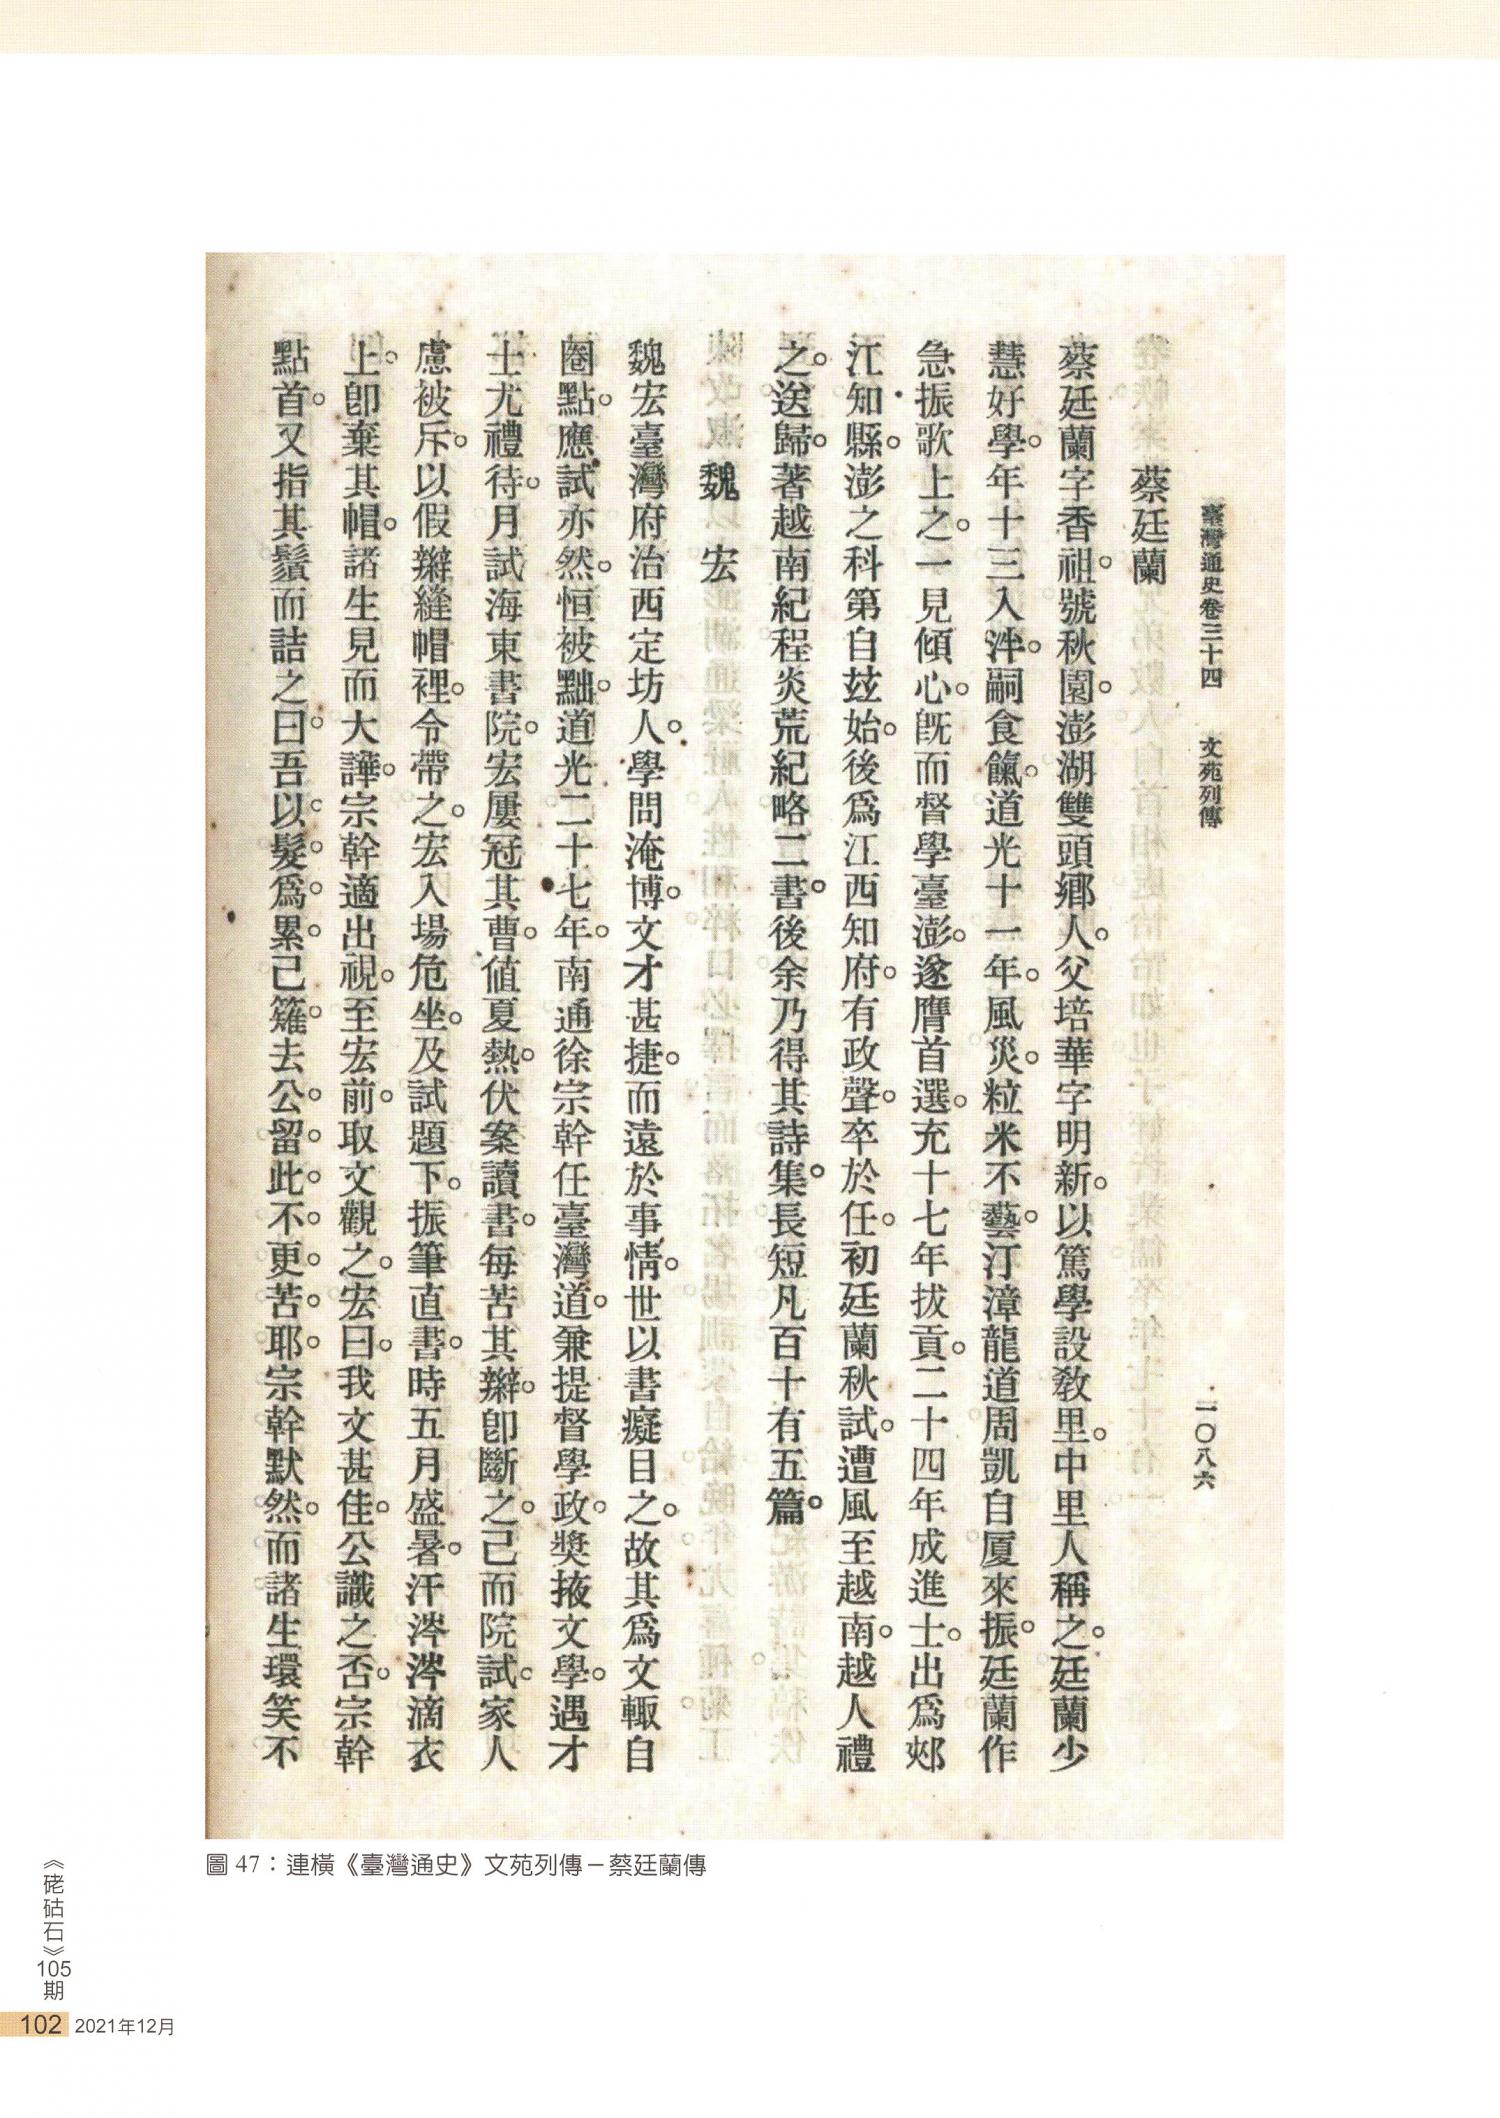 臺灣通史卷三十四　文苑列傳　一〇八六
蔡廷蘭
蔡廷蘭字香祖。號秋園。澎湖雙頭鄉人。父培華字明新。以篤學設教里。中里人稱之。廷蘭少
慧好學。年十三入泮。嗣食餼。道光十一年。風災。粒米不藝。汀漳龍道周凱自厦來振。廷蘭作
急振歌上之。一見傾心。旣而督學臺澎。遂膺首選。充十七年拔貢。二十四年成進士。出爲郟
江知縣。澎之科第自玆始。後爲江西知府。有政聲。卒於任。初廷蘭秋試。遭風至越南。越人禮
之。送歸。著越南紀程炎荒紀略二書。後余乃得其詩集。長短凡百十有五篇。
魏　宏
魏宏臺灣府治西定坊人。學問淹博。文才甚捷。而遠於事情。世以書癡目之。故其爲文輙自
圈點。應試亦然。恒被黜。道光二十七年。南通徐宗幹任臺灣道。兼提督學政。獎掖文學。遇才
士尤禮待。月試海東書院。宏屢冠其曹。値夏熱。伏案讀書。每苦其辮。卽斷之。己而院試。家人
慮被斥。以假辮縫帽裡。令帶之。宏入場危坐。及試題下。振筆直書。時五月盛暑。汗涔涔滴衣
上。卽棄其帽。諸生見而大譁。宗幹適出視。至宏前。取文觀之。宏曰。我文甚佳。公識之否。宗幹
點首。又指其鬚而詰之曰。吾以。髮。爲。累。己薙。去公。留。此。不。更。苦。耶。宗幹默然。而諸生環笑不
圖 47：連橫《臺灣通史》文苑列傳－蔡廷蘭傳
《硓𥑮石》105期
102 2021年12月